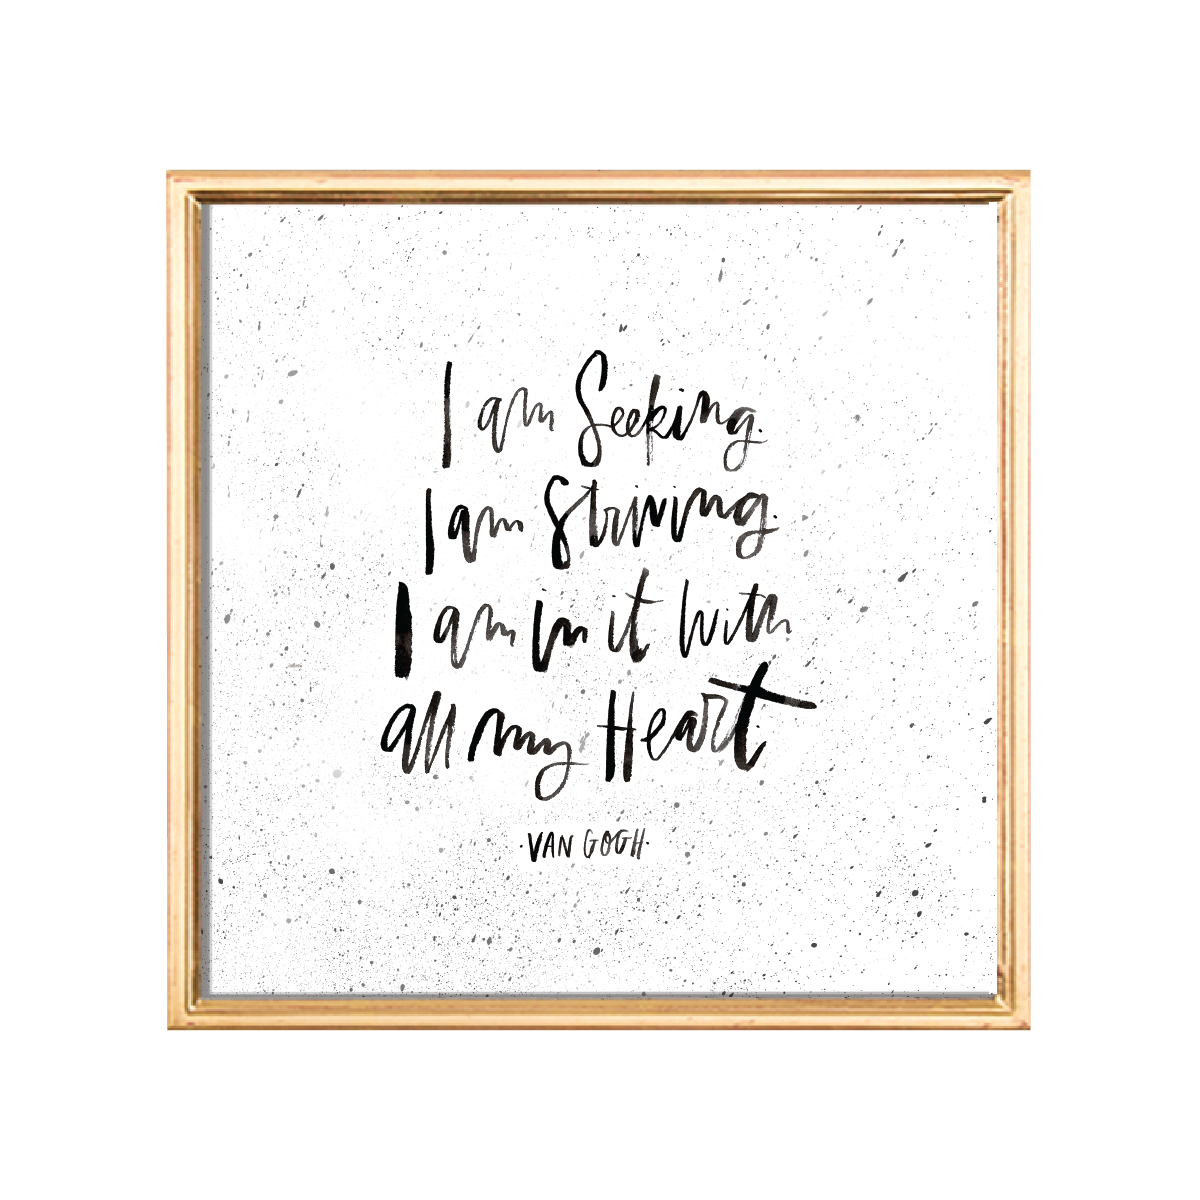 I am Seeking.
I am Striving.
I am in it With
all my Heart.
·VAN GOGH·